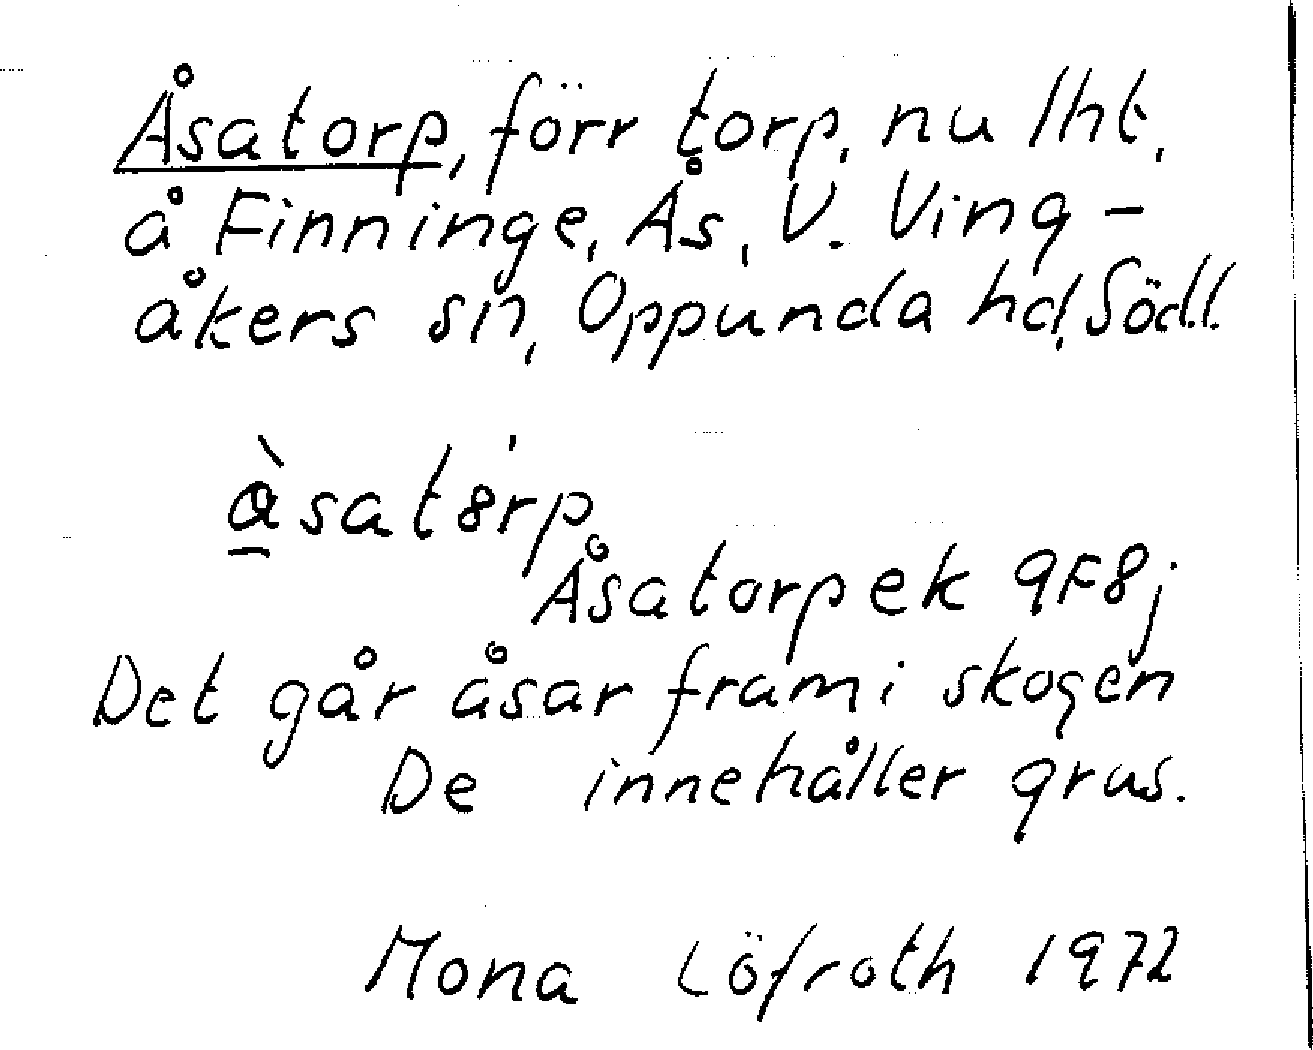 Åsatorp, förr torp, nu lht,
å Finninge, Ås, V. Ving-
åkers sn, Oppunda hd, Södl.
å̀satȣ́rp
Åsatorp ek 9F8j
Det går åsar fram i skogen
De innehåller grus.
Mona Löfroth 1972